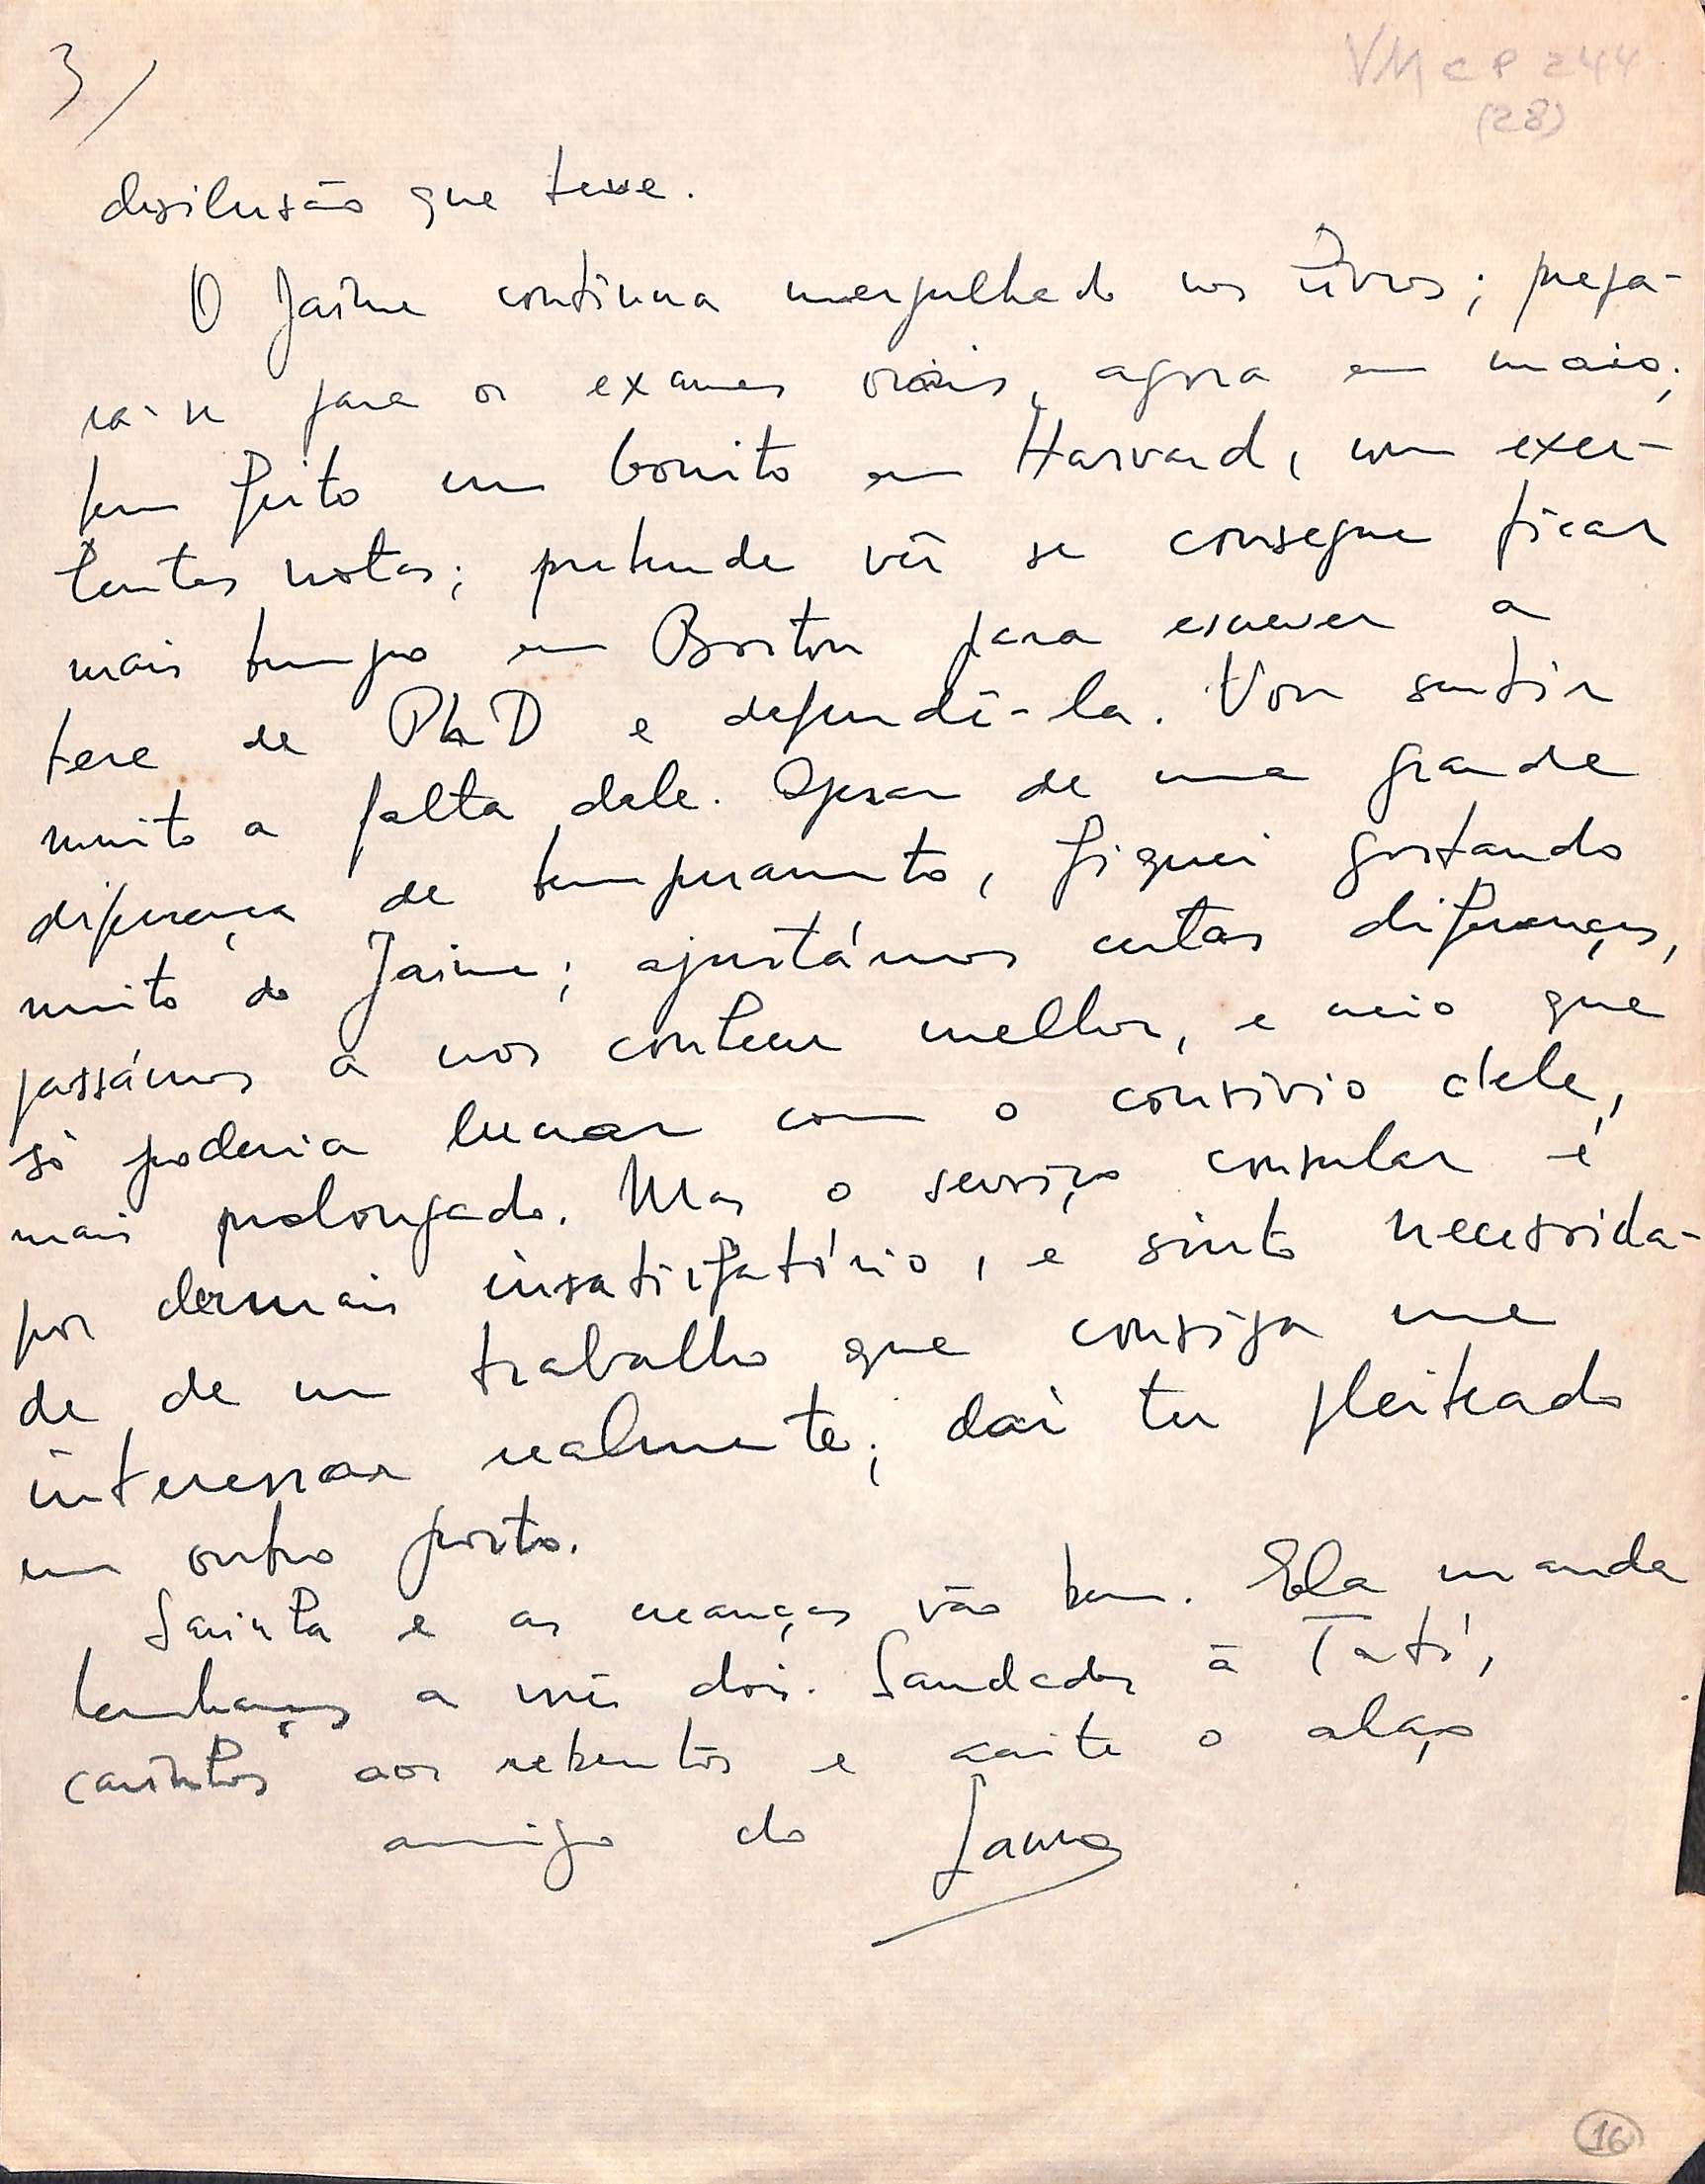 3/
VM CP 244
(28)
desilusão que teve.
O Jaime continua mergulhado nos livros; prepa-
ra-se para os exames orais, agora em maio;
tem feito um bonito em Harvard, com exce-
lentes notas; pretende vêr se consegue ficar
mais tempo em Boston para escrever a
tese de PhD e defendê-la. Vou sentir
muito a falta dele. Apesar de uma grande
diferença de temperamento, fiquei gostando
muito do Jaime; ajustámos certas diferenças,
passámos a nos conhecer melhor, e creio que
só poderia lucrar com o convívio dele,
mais prolongado. Mas o serviço consular é
por demais insatisfatório, e sinto necessida-
de de um trabalho que consiga me
interessar realmente; daí ter pleiteado
um outro posto.
e as creanças vão bem. Ela manda
lembranças a vocês dois. Saudades à Tati,
carinhos aos rebentos e aceite o abraço
amigo do Lauro
16